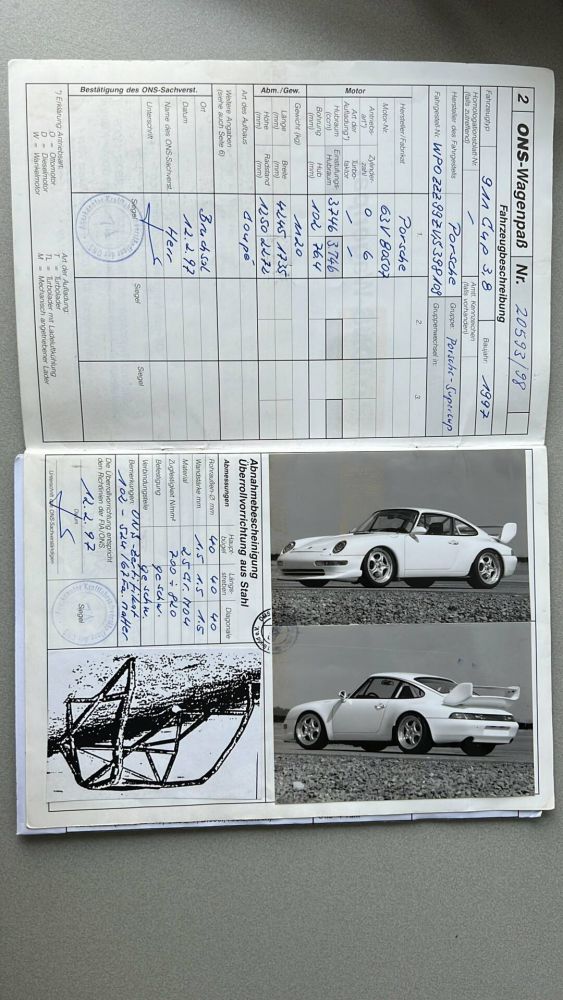 2 ONS-Wagenpaß Nr. 20593/98
Fahrzeugbeschreibung
Fahrzeugtyp 911 Cup 3.8 Baujahr 1997
Homologationsblatt-Nr. (falls zutreffend) - Amtl. Kennzeichen (falls vorhanden)
Hersteller des Fahrgestells Porsche Gruppe: Porsche-Supercup
Fahrgestell-Nr. WP0ZZZ99ZVS398109 Gruppenwechsel in:
1. 2. 3.
Motor
Hersteller/Fabrikat Porsche
Motor-Nr. 63V80507
Antriebsart*) Zylinderzahl O 6
Art der Aufladung*) Turbofaktor - -
Hubraum (ccm) Einstufungs-Hubraum 3746 3746
Bohrung (mm) Hub (mm) 102 76,4
Abm./Gew.
Gewicht (kg) 1120
Länge (mm) Breite (mm) 4245 1735
Höhe (mm) Radstand (mm) 1250 2272
Art des Aufbaus Coupé
Weitere Angaben (siehe auch Seite 6)
Bestätigung des ONS-Sachverst.
Ort Bruchsal
Datum 12.2.97
Name des ONS-Sachverst. Herr
Unterschrift Siegel Siegel Siegel
*) Erklärung Antriebsart:
O = Ottomotor
D = Dieselmotor
W = Wankelmotor
Art der Aufladung:
T = Turbolader
TL = Turbolader mit Ladeluftkühlung
M = Mechanisch angetriebener Lader
Abnahmebescheinigung
Überrollvorrichtung aus Stahl
Abmessungen Hauptbügel Längsstreben Diagonale
Rohraußen-Ø mm 40 40 40
Wandstärke mm 1.5 1.5 1.5
Material 25 Cr. Mo 4
Zugfestigkeit N/mm² 700 ÷ 820
Befestigung geschw.
Verbindungsteile geschw.
Bemerkungen: ONS-Zertifikat
102-524/67 Fa. Matter
Die Überrollvorrichtung entspricht
den Richtlinien der FIA/ONS
12.2.97
Datum
Unterschrift des ONS-Sachverständigen
Siegel